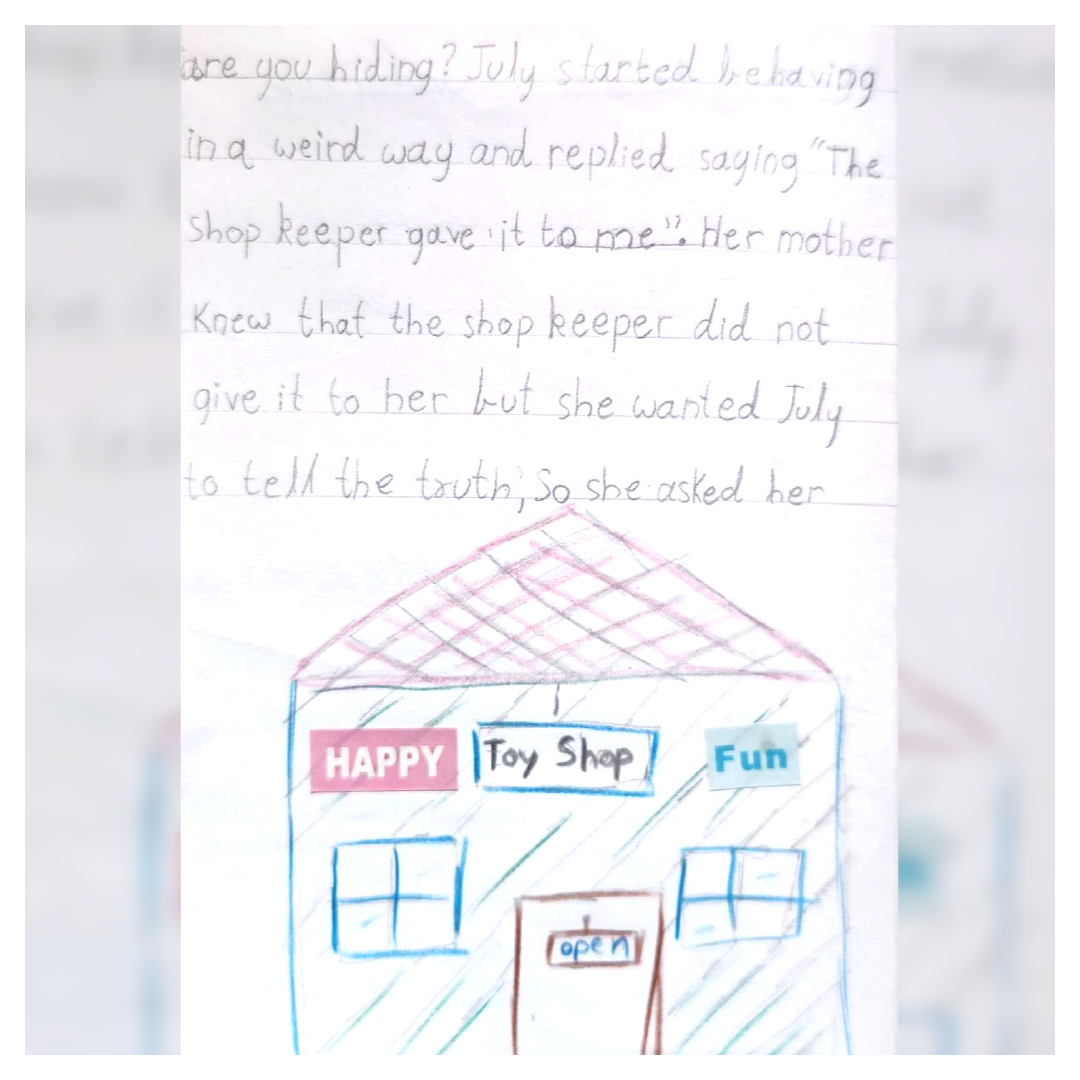 are you hiding? July started behaving
in a weird way and replied saying "The
shop keeper gave it to me". Her mother
Knew that the shop keeper did not
give it to her but she wanted July
to tell the truth, So she asked her
HAPPY Toy Shop Fun
open